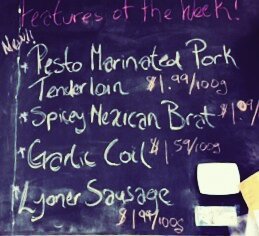 Features of the Week!
New!!
* Pesto Marinated Pork
Tenderloin $1.99/100g
* Spicey Mexican Brat
* Garlic Coil $1.59/100g
* Lyoner Sausage
$1.99/100g